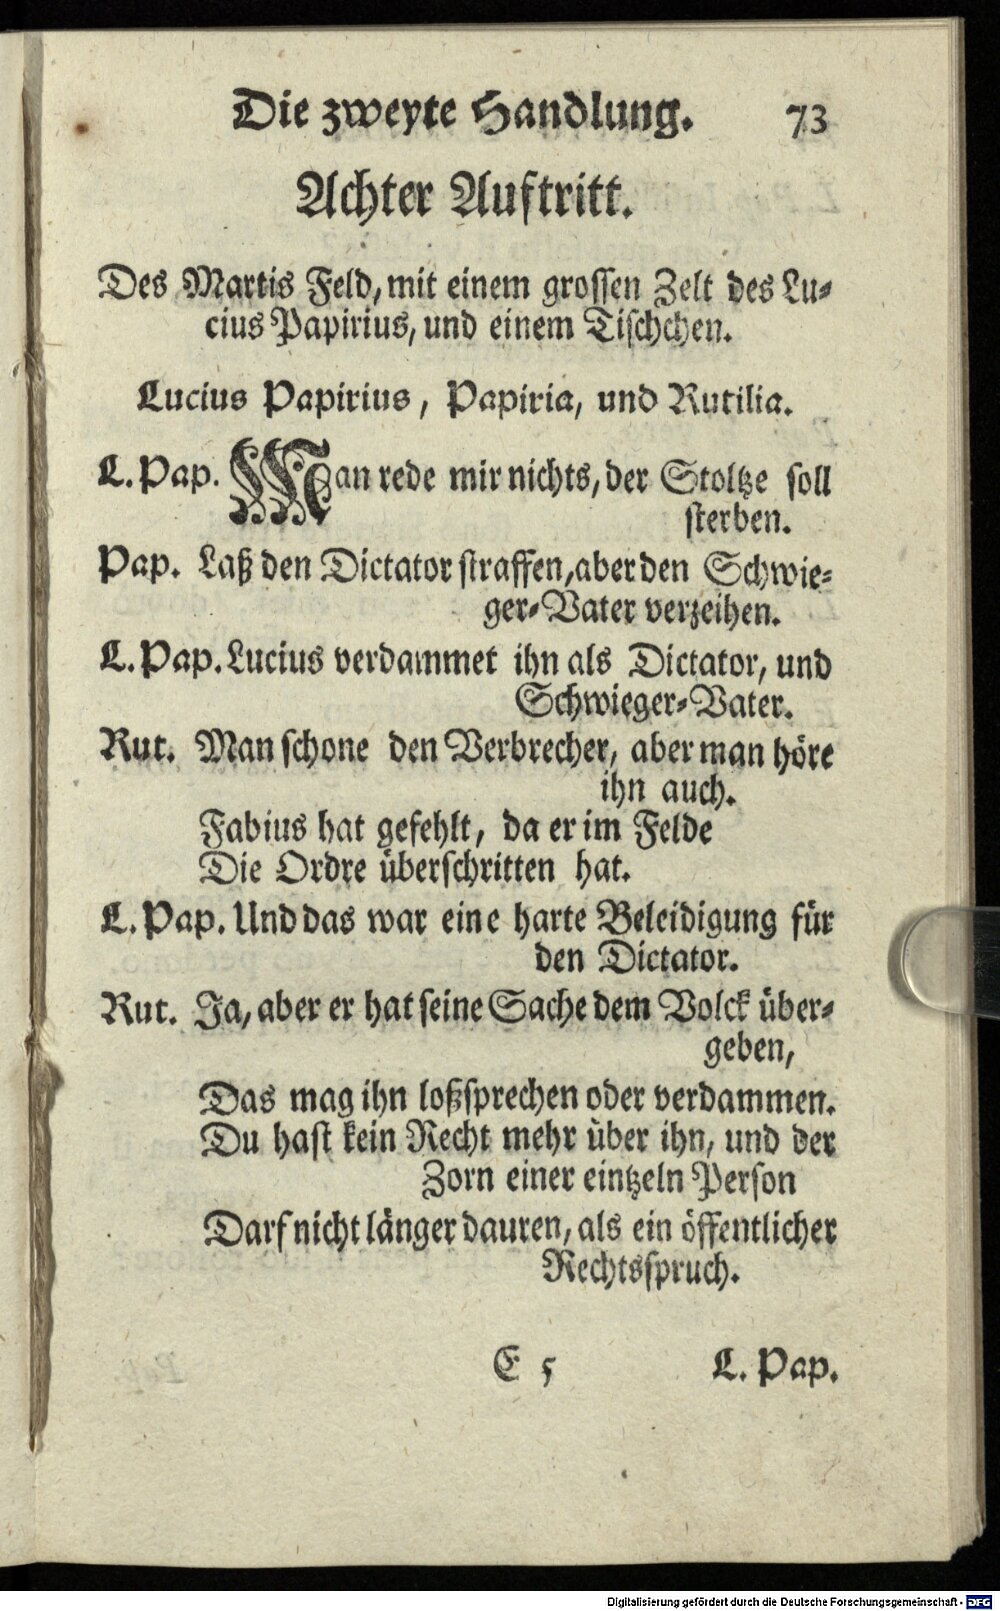 Die zweyte Handlung. 73
Achter Auftritt.
Des Martis Feld, mit einem grossen Zelt des Lu-
cius Papirius, und einem Tischchen.
Lucius Papirius, Papiria, und Rutilia.
L. Pap. Man rede mir nichts, der Stoltze soll
sterben.
Pap. Laß den Dictator straffen, aber den Schwie-
ger-Vater verzeihen.
L. Pap. Lucius verdammet ihn als Dictator, und
Schwieger-Vater.
Rut. Man schone den Verbrecher, aber man höre
ihn auch.
Fabius hat gefehlt, da er im Felde
Die Ordre überschritten hat.
L. Pap. Und das war eine harte Beleidigung für
den Dictator.
Rut. Ja, aber er hat seine Sache dem Volck über-
geben,
Das mag ihn loßsprechen oder verdammen.
Du hast kein Recht mehr über ihn, und der
Zorn einer eintzeln Person
Darf nicht länger dauren, als ein öffentlicher
Rechtsspruch.
E 5 L. Pap.
Digitalisierung gefördert durch die Deutsche Forschungsgemeinschaft - DFG